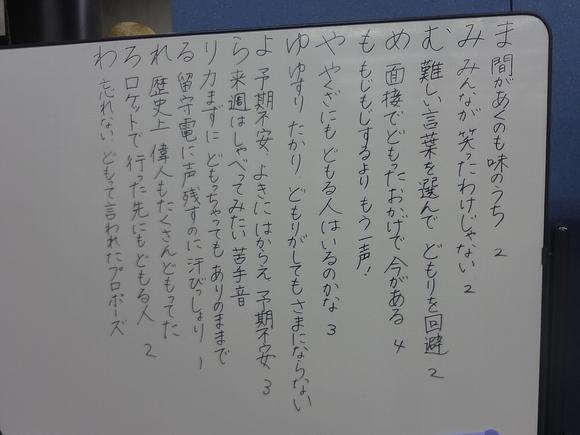 ま 間があくのも味のうち 2
み みんなが笑ったわけじゃない 2
む 難しい言葉を選んで どもりを回避 2
め 面接でどもったおかげで 今がある 4
も もじもじするより もう一声！
や やくざにも どもる人はいるのかな 3
ゆ ゆすり たかり どもりがしても さまにならない
よ 予期不安、よきにはからえ 予期不安 3
ら 来週はしゃべってみたい 苦手音
り 力まずに どもっちゃっても ありのままで
る 留守電に声残すのに 汗びっしょり 1
れ 歴史上 偉人もたくさんどもってた
ろ ロケットで 行った先にもどもる人 2
わ 忘れない どもって言われたプロポーズ